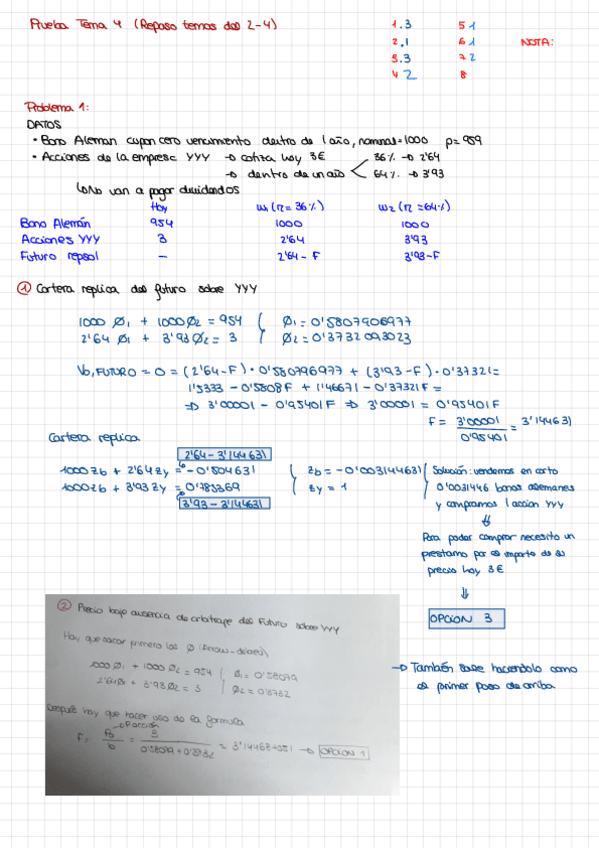 Prueba Tema 4 (Repaso temas del 2-4)
1.3 5 1
2.1 6 1 NOTA:
3.3 7 2
4 2 8
Problema 1:
DATOS
• Bono Aleman cupon cero vencimiento dentro de 1 año, nominal=1000 p= 959
• Acciones de la empresa YYY → cotiza hoy 3€ 36% → 2'64
→ dentro de un año 64% → 3'93
↳ No van a pagar dividendos
Hoy W1 (π= 36%) W2 (π=64%)
Bono Alemán 954 1000 1000
Acciones YYY 3 2'64 3'93
Futuro repsol — 2'64 - F 3'93-F
① Cartera replica del futuro sobre YYY
1000 Ø1 + 1000Ø2 = 954 Ø1= 0'5807906977
2'64 Ø1 + 3'93Ø2 = 3 Ø2= 0'3732093023
V0, FUTURO = 0 = (2'64-F)·0'580796977 + (3'93-F)·0'37321=
1'5333 - 0'5808F + 1'46671 - 0'37321F =
⇒ 3'00001 - 0'95401F ⇒ 3'00001 = 0'95401F
F = 3'00001 / 0'95401 = 3'144631
Cartera replica
2'64-3'144631
1000zb + 2'64zy = -0'504631 zb= -0'003144631 Solución: vendemos en corto
1000zb + 3'93zy = 0'785369 zy= 1 0'0031446 bonos alemanes
3'93-3'144631 y compramos 1 accion YYY
Para poder comprar necesito un
prestamo por el importe de su
precio hoy 3€
OPCION 3
② Precio bajo ausencia de arbitraje del Futuro sobre YYY
Hay que sacar primero los Ø (Arrow-debreu)
1000Ø1 + 1000Ø2 = 954 Ø1= 0'58079
2'64Ø1 + 3'93Ø2 = 3 Ø2= 0'3732
→ También sale haciendolo como
el primer paso de arriba
Después hay que hacer uso de la formula
→ P accion
F = P0 / b = 3 / 0'58079+0'3732 = → OPCION 1